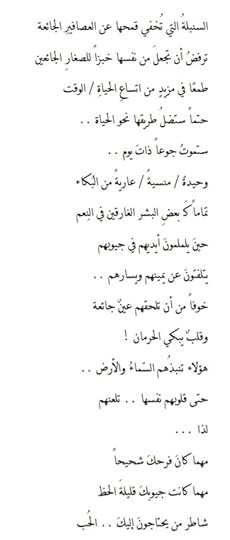 السنبلةُ التي تُخفي قمحها عن العصافيرِ الجائعة
ترفضُ أن تجعلَ من نفسها خبزاً للصغارِ الجائعين
طمعًا في مزيدٍ من اتساعِ الحياةِ / الوقت
حتماً ستضلُ طريقها نحو الحياة ..
ستموتُ جوعاً ذاتَ يوم ..
وحيدةً / منسيةً / عاريةً من البُكاء
تماماً كَ بعضِ البشر الغارقين في النِعم
حينَ يلملمونَ أيديهم في جيوبهم
يتلفتونَ عن يمينهم ويسارهم ..
خوفاً من أن تلحقهم عينٌ جائعة
وقلبٌ يبكي الحرمان !
هؤلاء تنبذهُم السّماءُ والأرض ..
حتى قلوبهم نفسها .. تلعنهم
لذا ...
مهما كانَ فرحكَ شحيحاً
مهما كانت جيوبكَ قليلةَ الحظ
شاطر من يحتاجونَ إليكَ .. الحُب